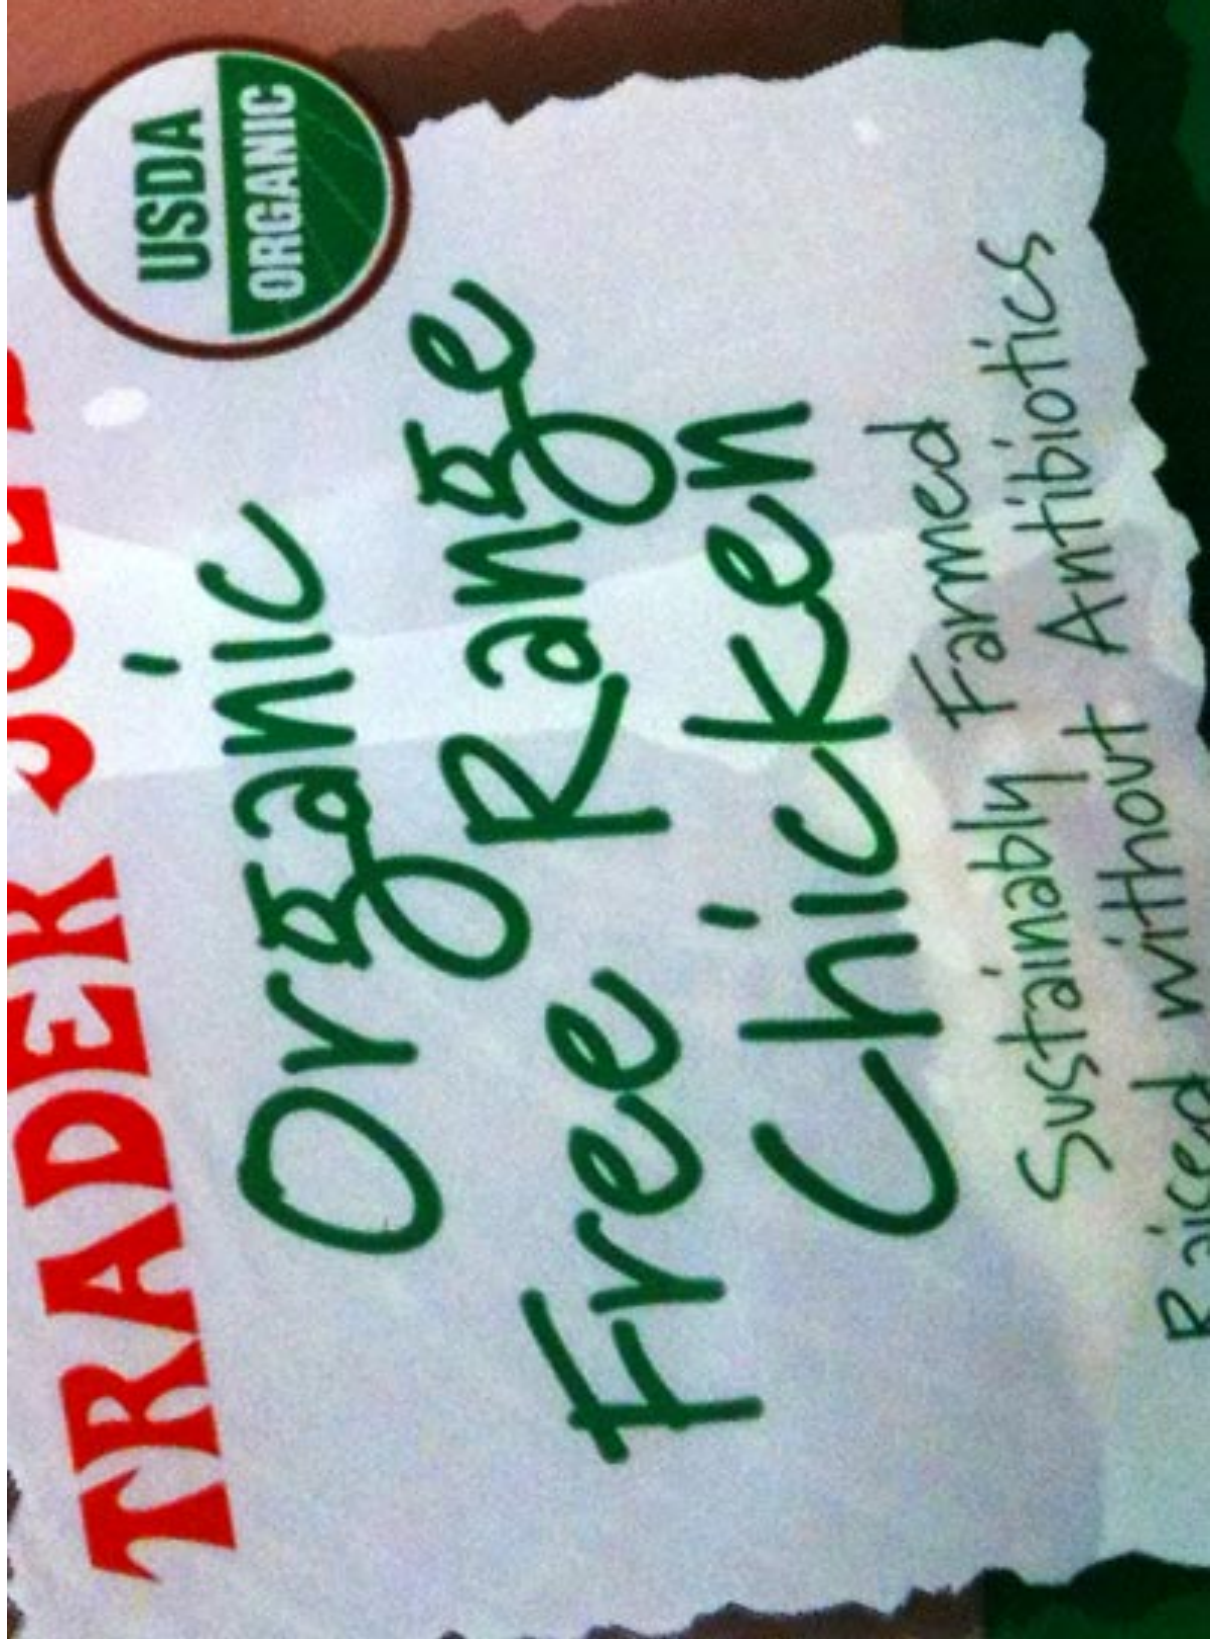 TRADER JOE'S
USDA
ORGANIC
Organic
Free Range
Chicken
Sustainably Farmed
Raised without Antibiotics